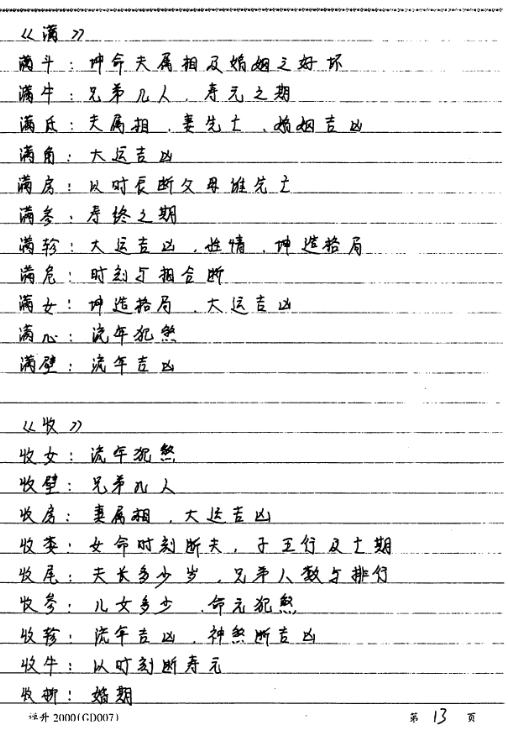 《满》
满斗：坤命夫属相及婚姻之好坏
满牛：兄弟几人、寿元之期
满氐：夫属相、妻先亡、婚姻吉凶
满角：大运吉凶
满房：以时辰断父母谁先亡
满参：寿终之期
满轸：大运吉凶、性情、坤造格局
满危：时刻与相合断
满女：坤造格局、大运吉凶
满心：流年犯煞
满壁：流年吉凶
《收》
收女：流年犯煞
收壁：兄弟几人
收房：妻属相、大运吉凶
收娄：女命时刻断夫，子五行及亡期
收尾：夫长多少岁、兄弟人数与排行
收参：儿女多少、命元犯煞
收轸：流年吉凶、神煞断吉凶
收牛：以时刻断寿元
收柳：婚期
2000(GD007) 第 13 页